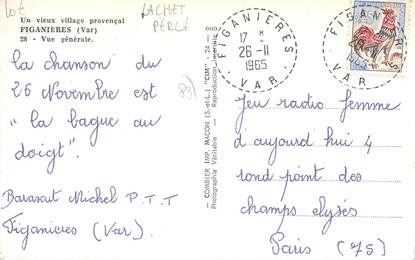 Lot
CACHET
PERLÉ
Un vieux village provençal
FIGANIÈRES (Var)
28 - Vue générale.
la chanson du
26 Novembre est
"la bague au
doigt".
Barasaut Michel P.T.T
Figanieres (Var)
83)
COMBIER IMP. MACON (S.-et-L.) "CIM"
Photographie Véritable - Reproduction Interdite
FIGANIERES
17 H
26-11
1965
VAR
FIGANIERES
VAR
Jeu radio femme
d'aujourd hui 4
rond point des
champs elysés
Paris (75)